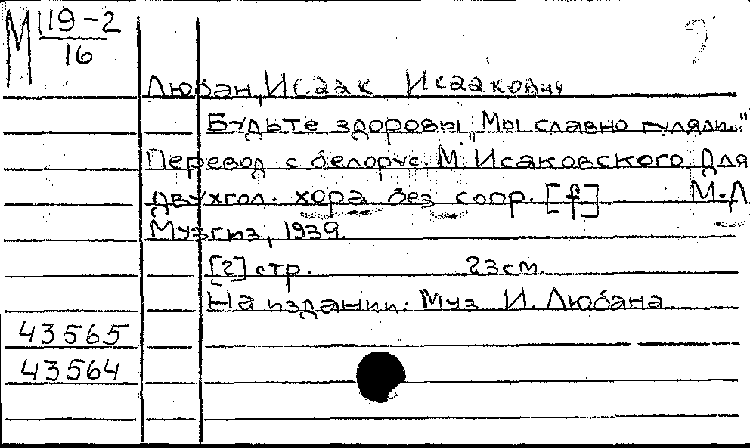 М 119-2
16
Любан, Исаак Исаакович
Будьте здоровы „Мы славно гуляли..."
Перевод с белорус. М. Исаковского. Для
двухгол. хора без сопр. [f] М.-Л
Музгиз, 1939.
[2] стр. 23см.
На издании: Муз И. Любана
43565
43564